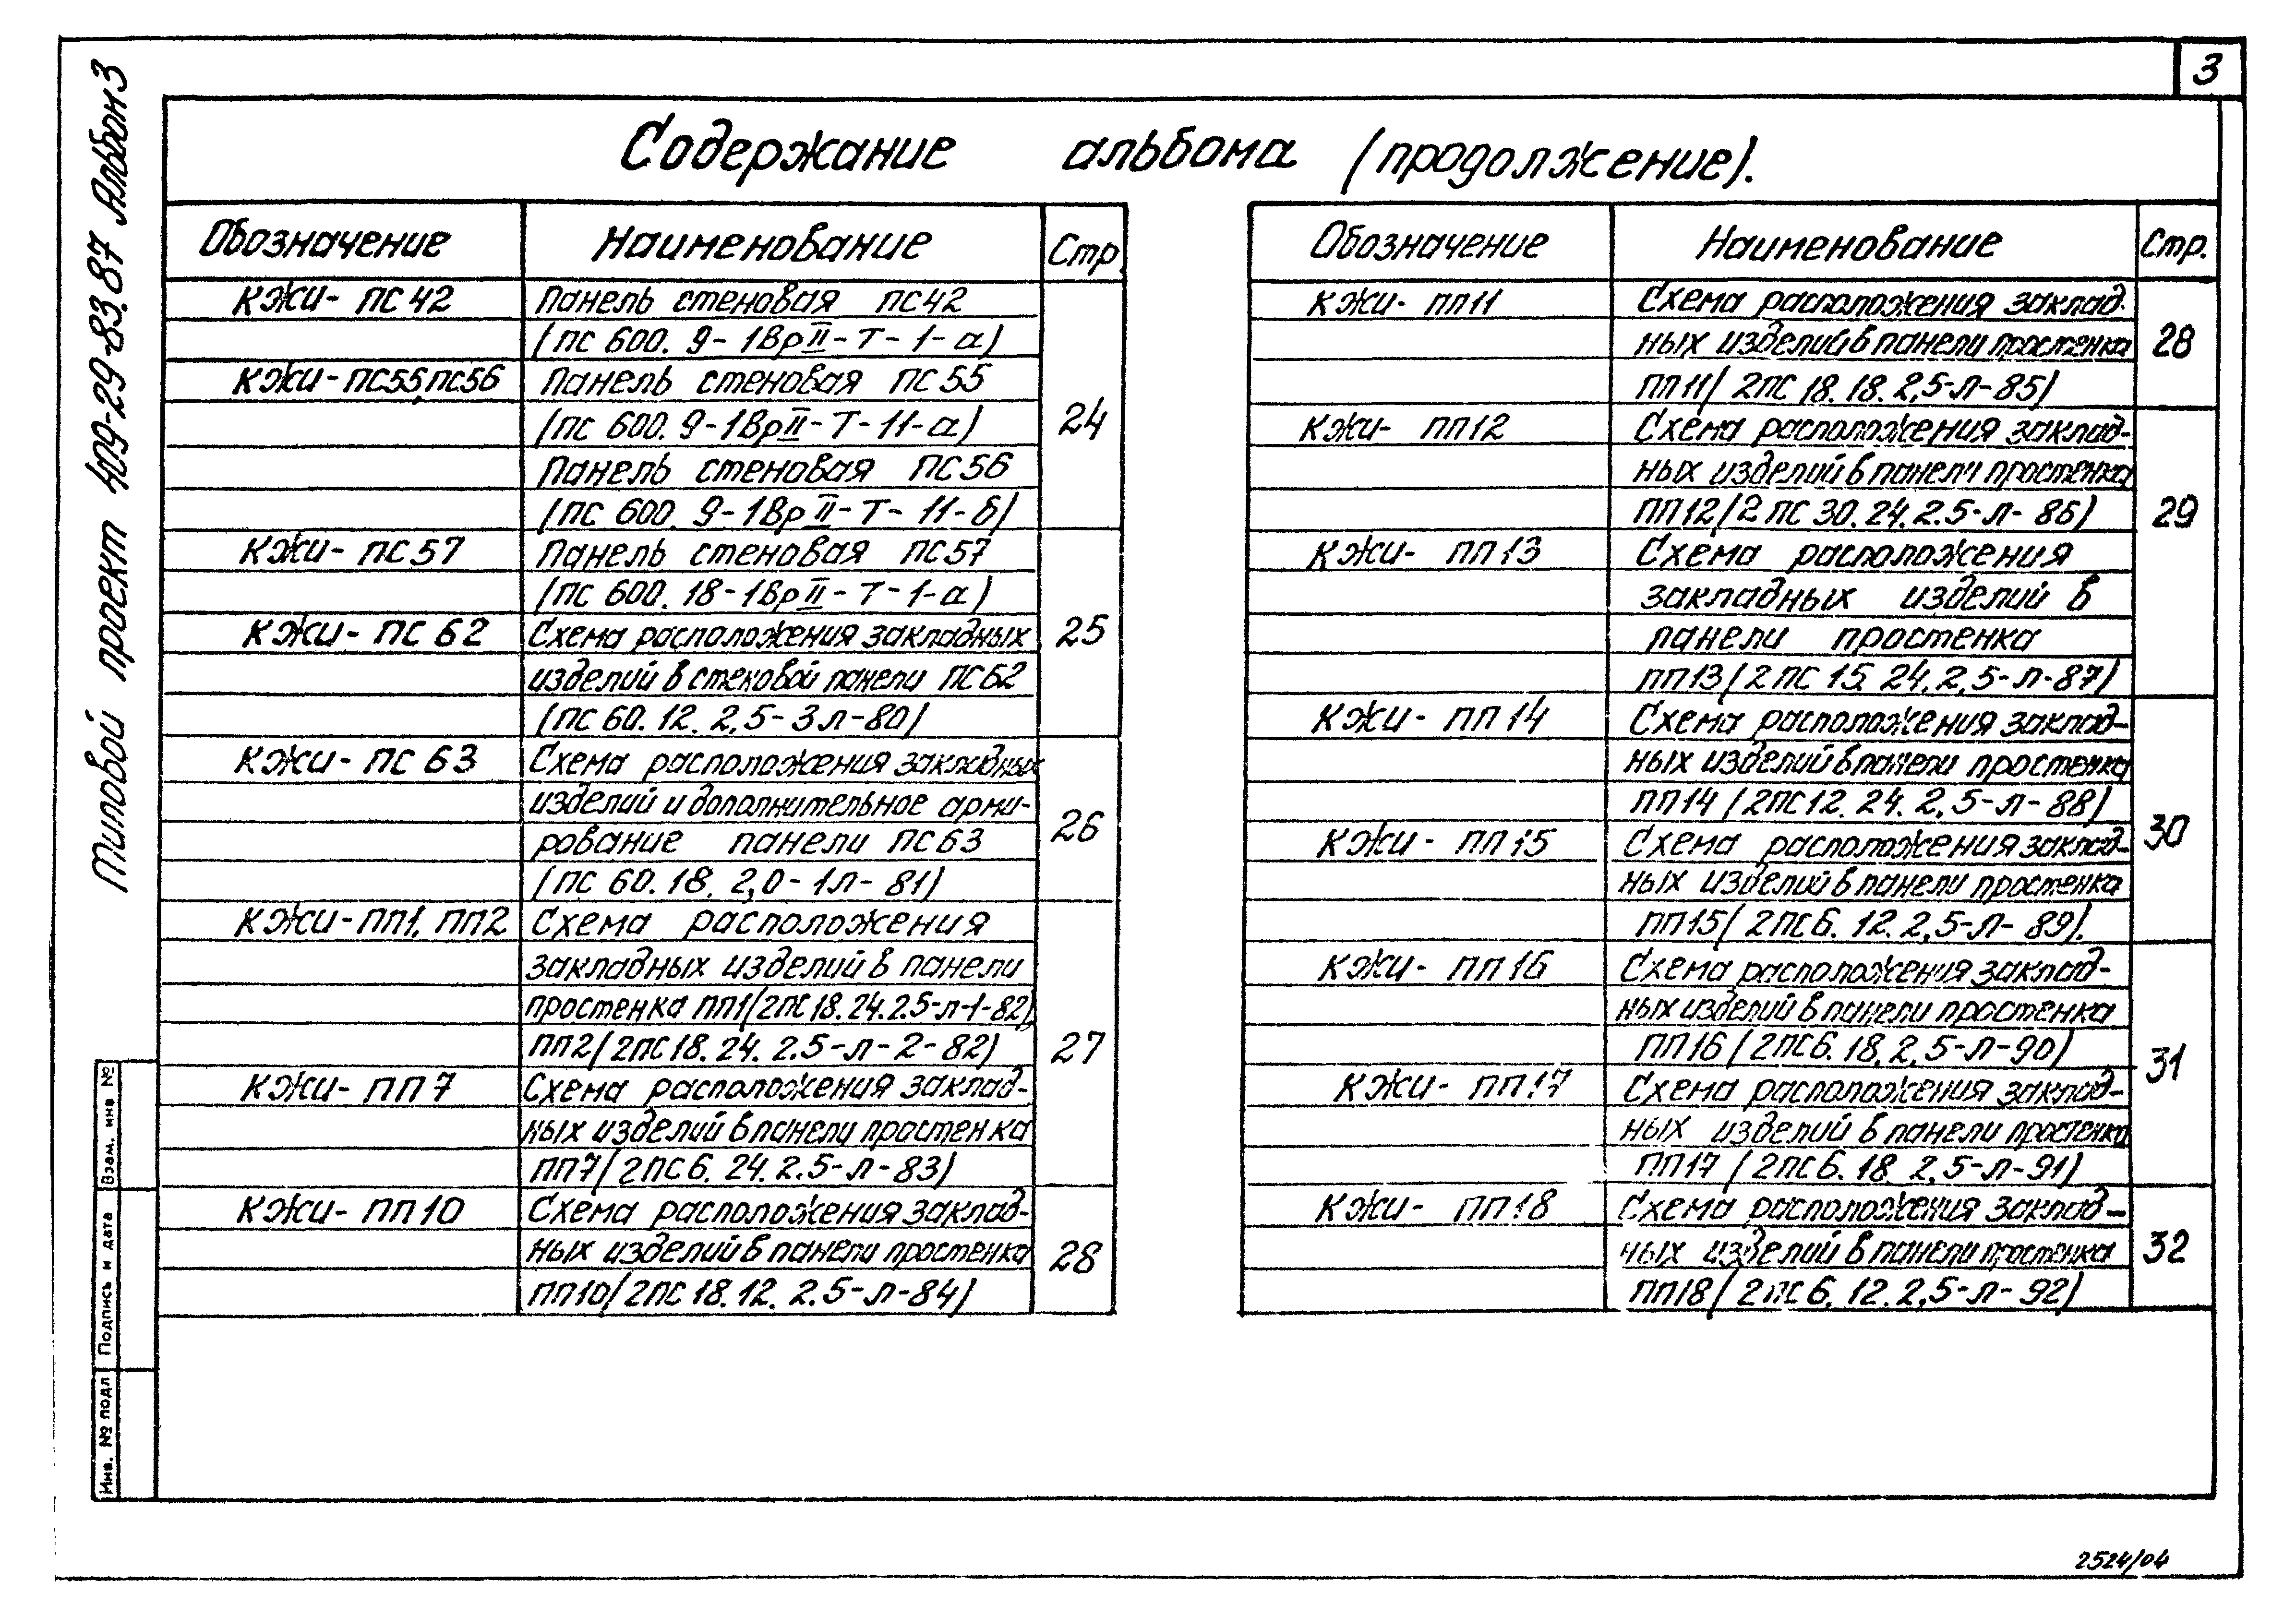 3
Типовой проект 409-29-83.87 Альбом 3
Содержание альбома (продолжение).
Обозначение Наименование Стр.
КЖИ- ПС 42 Панель стеновая ПС42
(ПС 600. 9-1ВрII-Т-1-а)
КЖИ-ПС55,ПС56 Панель стеновая ПС55
(ПС 600. 9-1ВрII-Т-11-а) 24
Панель стеновая ПС56
(ПС 600. 9-1ВрII-Т-11-б)
КЖИ-ПС57 Панель стеновая ПС57
(ПС 600. 18-1ВрII-Т-1-а)
КЖИ- ПС 62 Схема расположения закладных 25
изделий в стеновой панели ПС62
(ПС 60. 12. 2,5-3л-80)
КЖИ- ПС 63 Схема расположения закладных
изделий и дополнительное арми-
рование панели ПС63 26
(ПС 60. 18. 2,0-1л-81)
КЖИ-ПП1, ПП2 Схема расположения
закладных изделий в панели
простенка ПП1(2ПС 18. 24. 2.5-л-1-82),
ПП2(2ПС18. 24. 2.5-л-2-82) 27
КЖИ-ПП7 Схема расположения заклад-
ных изделий в панели простенка
ПП7(2ПС6. 24. 2.5-л-83)
КЖИ-ПП10 Схема расположения заклад-
ных изделий в панели простенка 28
ПП10(2ПС 18.12. 2.5-л-84)
Обозначение Наименование Стр.
КЖИ- ПП11 Схема расположения заклад-
ных изделий в панели простенка 28
ПП11(2ПС 18. 18. 2,5-л-85)
КЖИ- ПП12 Схема расположения заклад-
ных изделий в панели простенка
ПП12(2ПС 30. 24. 2.5-л-86) 29
КЖИ- ПП13 Схема расположения
закладных изделий в
панели простенка
ПП13(2ПС 15. 24. 2,5-л-87)
КЖИ- ПП14 Схема расположения заклад-
ных изделий в панели простенка
ПП14(2ПС12. 24. 2,5-л-88)
КЖИ- ПП15 Схема расположения заклад- 30
ных изделий в панели простенка
ПП15(2ПС6. 12. 2,5-л-89).
КЖИ- ПП16 Схема расположения заклад-
ных изделий в панели простенка
ПП16(2ПС6. 18. 2,5-л-90) 31
КЖИ- ПП17 Схема расположения заклад-
ных изделий в панели простенка
ПП17(2ПС6. 18 2,5-л-91)
КЖИ- ПП18 Схема расположения заклад-
ных изделий в панели простенка 32
ПП18(2ПС6. 12. 2,5-л-92)
Взам. инв №
Подпись и дата
Инв. № подл
2524/04